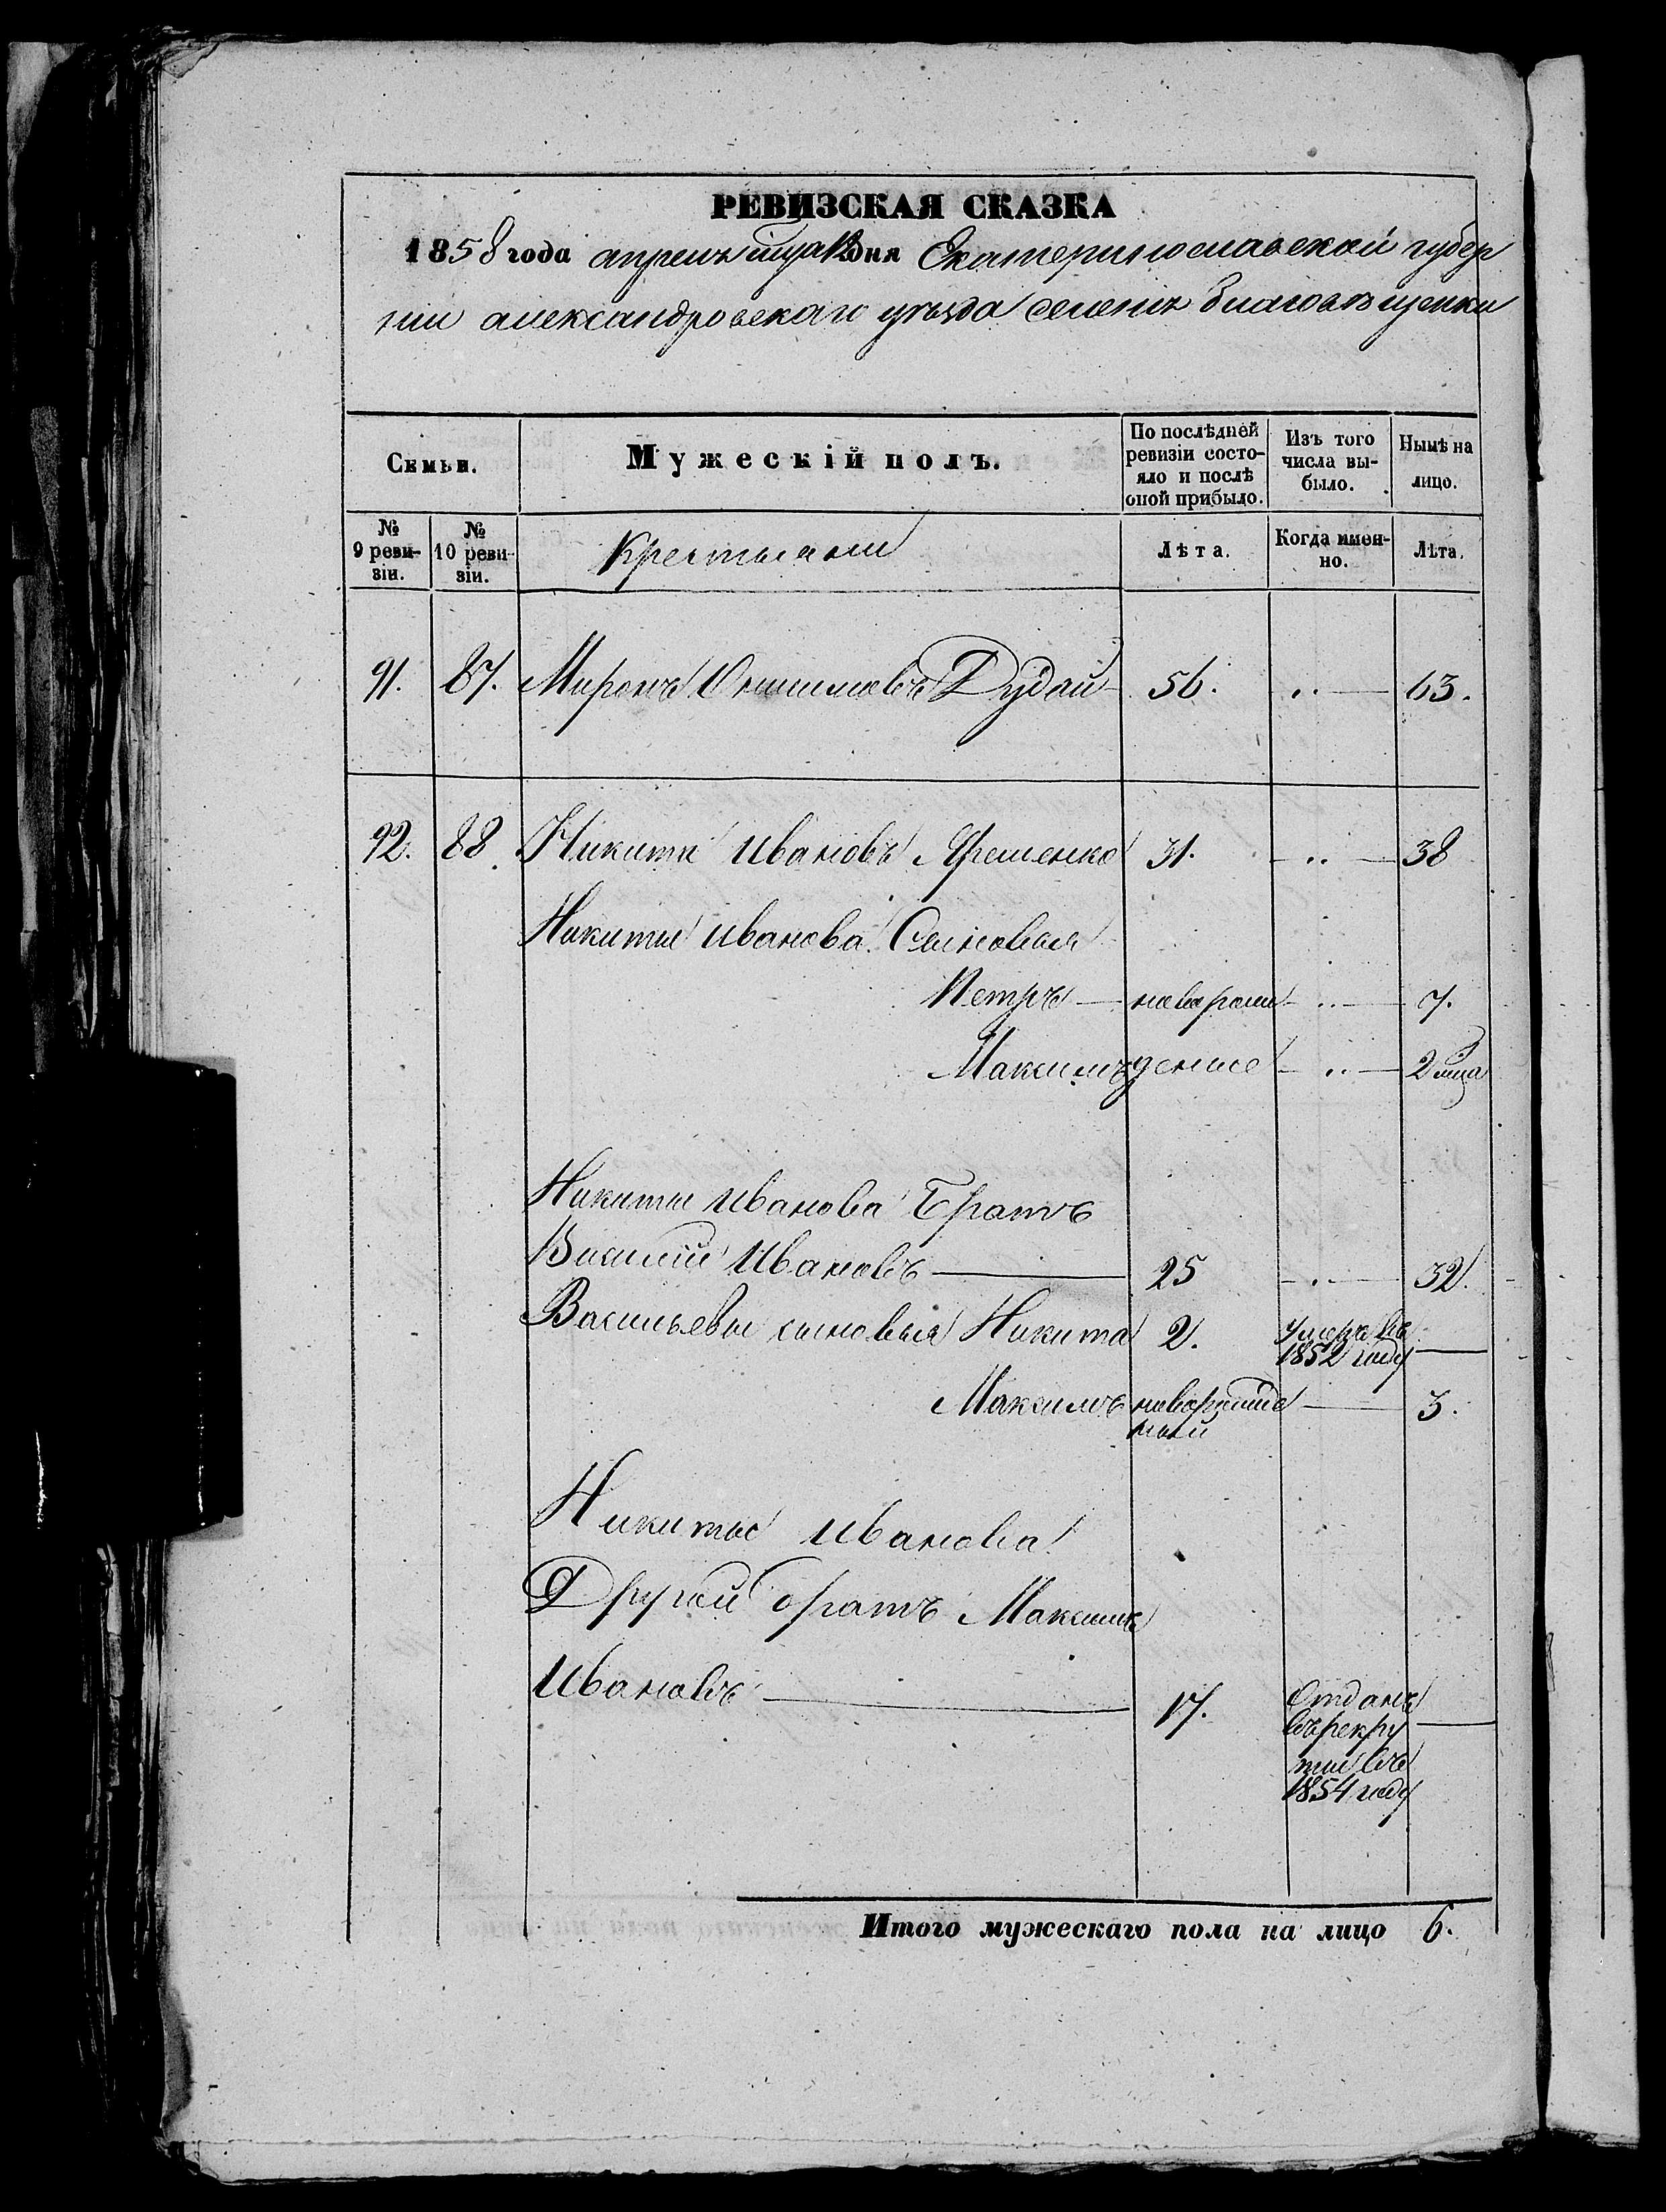 РЕВИЗСКАЯ СКАЗКА
1858 года апреля 12 дня Екатеринославской губер
нии александровскаго уѣзда селенія благовѣщенки
Семьи.
Мужескій полъ.
По послѣдней ревизіи состо-
яло и послѣ
оной прибыло.
Изъ того
числа вы-
было.
Нынѣ на
лицо.
№
9 реви-
зіи.
№
10 реви-
зіи.
Крестьяни
Лѣта.
Когда имен-
но.
Лѣта.
91. 87. Миронъ Онисимовъ Дудай 56. 63.
92. 88. Никита Ивановъ 31. 38
Никиты Иванова Сыновья
Петръ новорож 7.
Максимъ дение 2 мца
Никиты Иванова Братъ
Василий Ивановъ 25 32.
Васильевы сыновья Никита 2. Умеръ въ
1852 году
Максимъ новорожде 3.
ный
Никиты Иванова
Другой братъ Максимъ
Ивановъ 17. Отданъ
въ рекру
ты въ
1854 году
Итого мужескаго пола на лицо 6.